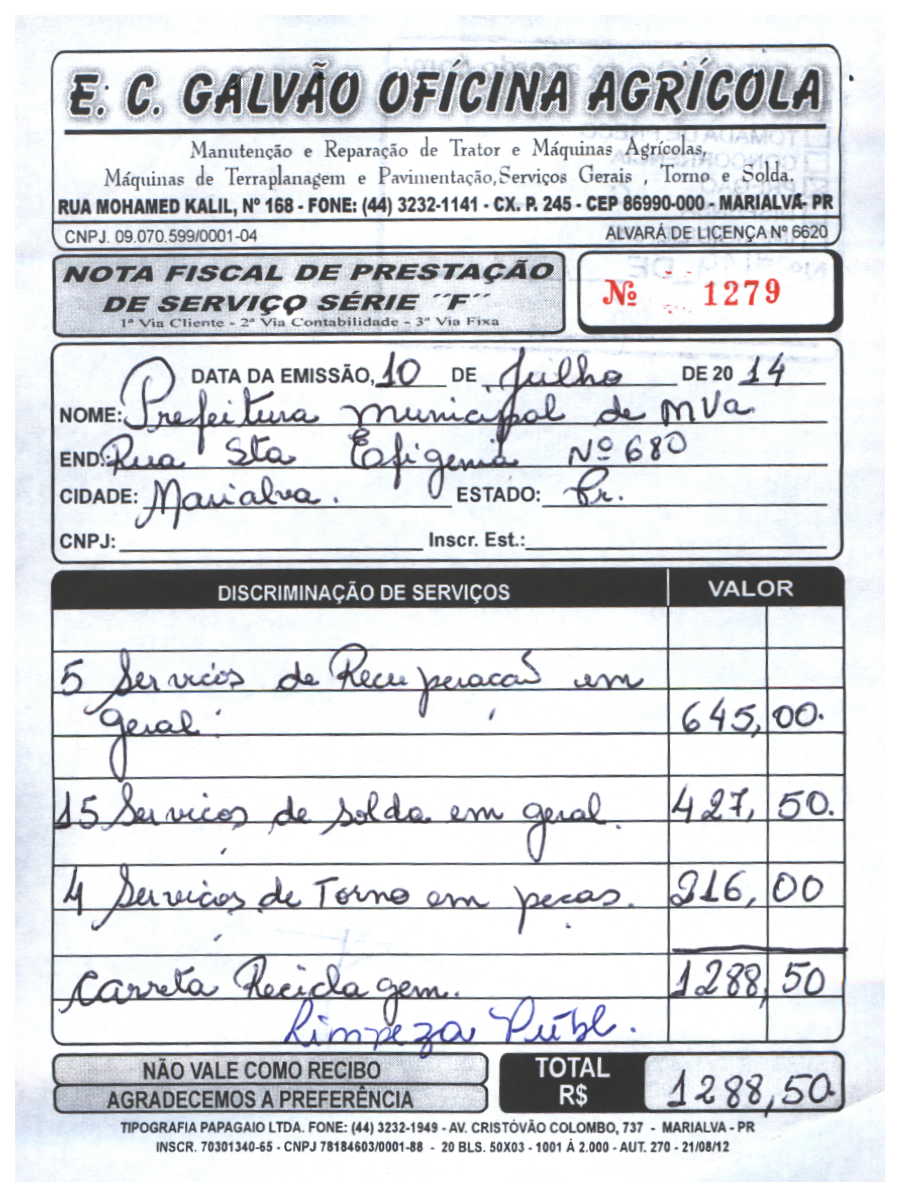 E. C. GALVÃO OFÍCINA AGRÍCOLA
Manutenção e Reparação de Trator e Máquinas Agrícolas,
Máquinas de Terraplanagem e Pavimentação, Serviços Gerais , Torno e Solda.
RUA MOHAMED KALIL, Nº 168 - FONE: (44) 3232-1141 - CX. P. 245 - CEP 86990-000 - MARIALVA- PR
CNPJ. 09.070.599/0001-04 ALVARÁ DE LICENÇA Nº 6620
NOTA FISCAL DE PRESTAÇÃO
DE SERVIÇO SÉRIE ´´F´´
1ª Via Cliente - 2ª Via Contabilidade - 3ª Via Fixa
Nº 1279
DATA DA EMISSÃO, 10 DE Julho DE 20 14
NOME: Prefeitura municipal de MVa
END: Rua Sta Efigenia Nº 680
CIDADE: Marialva. ESTADO: Pr.
CNPJ: Inscr. Est.:
DISCRIMINAÇÃO DE SERVIÇOS VALOR
5 Serviços de Recuperação em
geral. 645,00.
15 Serviços de solda em geral. 427,50.
4 Serviços de Torno em peças. 216,00
Carreta Reciclagem. 1288,50
Limpeza Públ.
NÃO VALE COMO RECIBO
AGRADECEMOS A PREFERÊNCIA
TOTAL
R$ 1288,50
TIPOGRAFIA PAPAGAIO LTDA. FONE: (44) 3232-1949 - AV. CRISTÓVÃO COLOMBO, 737 - MARIALVA - PR
INSCR. 70301340-65 - CNPJ 78184603/0001-88 - 20 BLS. 50X03 - 1001 À 2.000 - AUT. 270 - 21/08/12